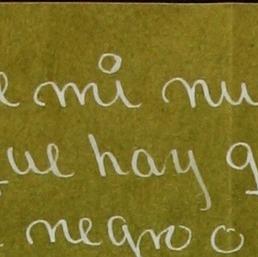 mi nu
que hay q
negro o